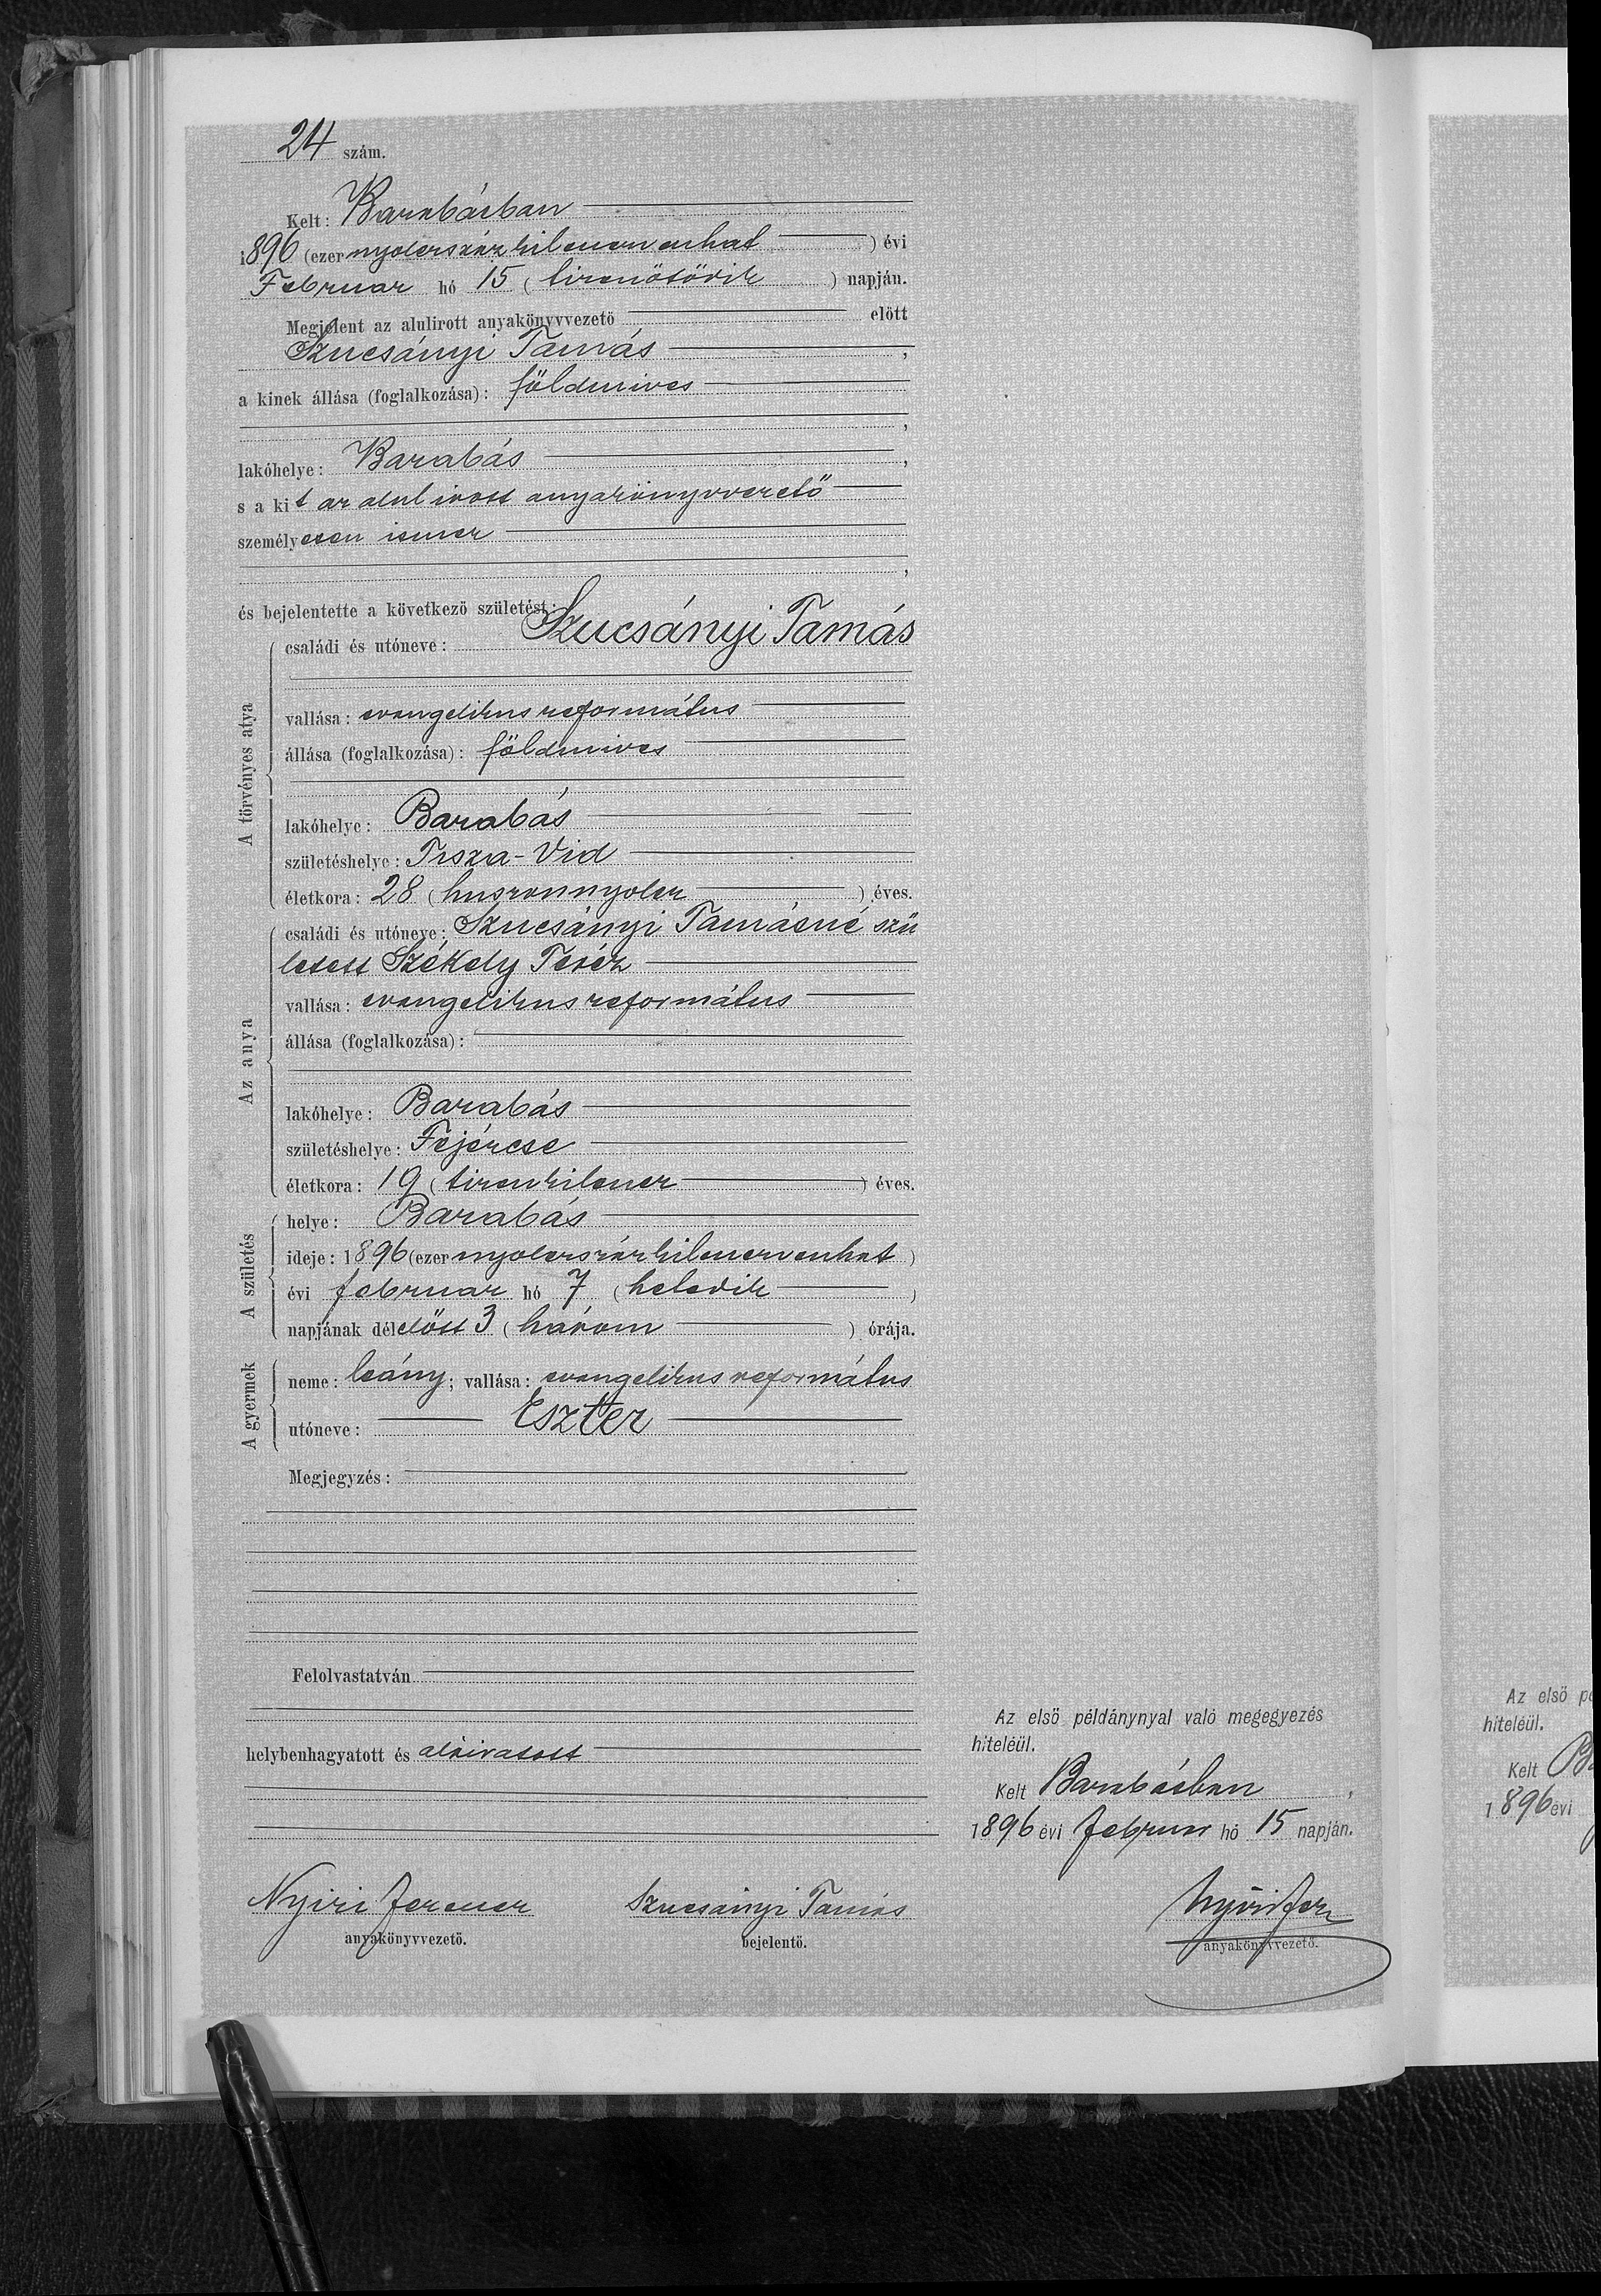 24 szám.
Kelt: Barabásban
1896 (ezer nyolcszáz kilencvenhat) évi
Februar hó 15 (tizenötödik) napján.
Megjelent az alulirott anyakönyvvezetö elött
Szucsányi Tamás,
a kinek állása (foglalkozása): földmives
,
lakóhelye: Barabás,
s a kit az alulirott anyakönyvvezető
személyesen ismer
,
és bejelentette a következö születést:
A törvényes atya
családi és utóneve: Szucsányi Tamás
vallása: evangelikus református
állása (foglalkozása): földmives
lakóhelye: Barabás
születéshelye: Tisza-Vid
életkora: 28 (huszonnyolcz) éves.
Az anya
családi és utóneve: Szucsányi Tamásné szü
letett Székely Teréz
vallása: evangelikus református
állása (foglalkozása):
lakóhelye: Barabás
születéshelye: Fejércse
életkora: 19 (tizenkilencz) éves.
A születés
helye: Barabás
ideje: 1896 (ezer nyolcszáz kilenczvenhat)
évi februar hó 7 (hetedik)
napjának délelőtt 3 (három) órája.
A gyermek
neme: leány; vallása: evangelikus református
utóneve: Eszter
Megjegyzés:
Felolvastatván
helybenhagyatott és aláiratott
Nyiri Ferencz
anyakönyvvezetö.
Szucsányi Tamás
bejelentö.
Az elsö példánynyal való megegyezés
hiteléül.
Kelt Barabásban,
1896 évi februar hó 15 napján.
Nyiri Fer
anyakönyvvezetö.
Az elsö
hiteléül.
Kelt
1896 évi